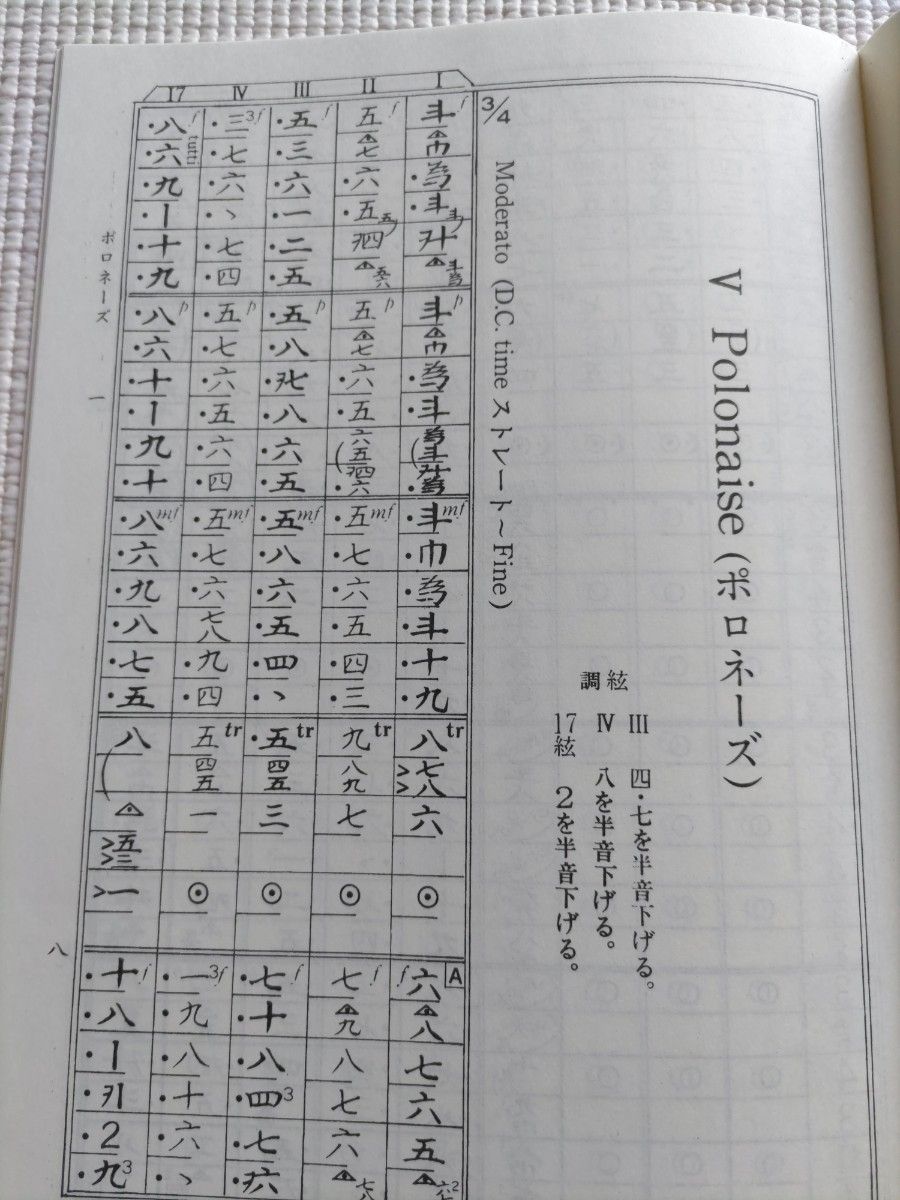 V Polonaise (ポロネーズ)
調絃
III 四・七を半音下げる。
IV 八を半音下げる。
17絃 2を半音下げる。
3/4 Moderato (D.C. time ストレート~Fine)
I
斗 f 巾 ・為 ・斗 斗 斗為
斗 p 巾 ・為 ・斗
・斗 mf ・巾 ・為 ・斗 ・十 ・九
八 tr >七 >八 六 ⊙
A 六 f 八 七 六 五
II
五 f 七 ・六 ・五 五 五六
五 p 七 ・六 ・五 (六 五 ・六
・五 mf ・七 ・六 ・五 ・四 ・三
九 tr 八九 七 ⊙
七 f 九 八 七 六 七八
III
・五 f ・三 ・六 ・一 ・二 ・五
・五 p ・八 ・八 ・六 ・五
・五 mf ・八 ・六 ・五 ・四 ・ヽ
・五 tr 四五 三 ⊙
・七 f ・十 ・八 ・四 3 ・七
IV
・三 3 f ・七 ・六 ・ヽ ・七 ・四
・五 p ・七 ・六 ・五 ・六 ・四
・五 mf ・七 ・六 七八 ・九 ・四
五 tr 四五 一 ⊙
・一 3 f ・九 ・八 ・十 ・六 ・ヽ
17
・八 f tutti ・六 ・九 ・1 ・十 ・九
・八 p ・六 ・十 ・1 ・九 ・十
・八 mf ・六 ・九 ・八 ・七 ・五
八 ( >五 >三 >一
・十 f ・八 ・1 ・2 ・九 3
ポロネーズ 一
八